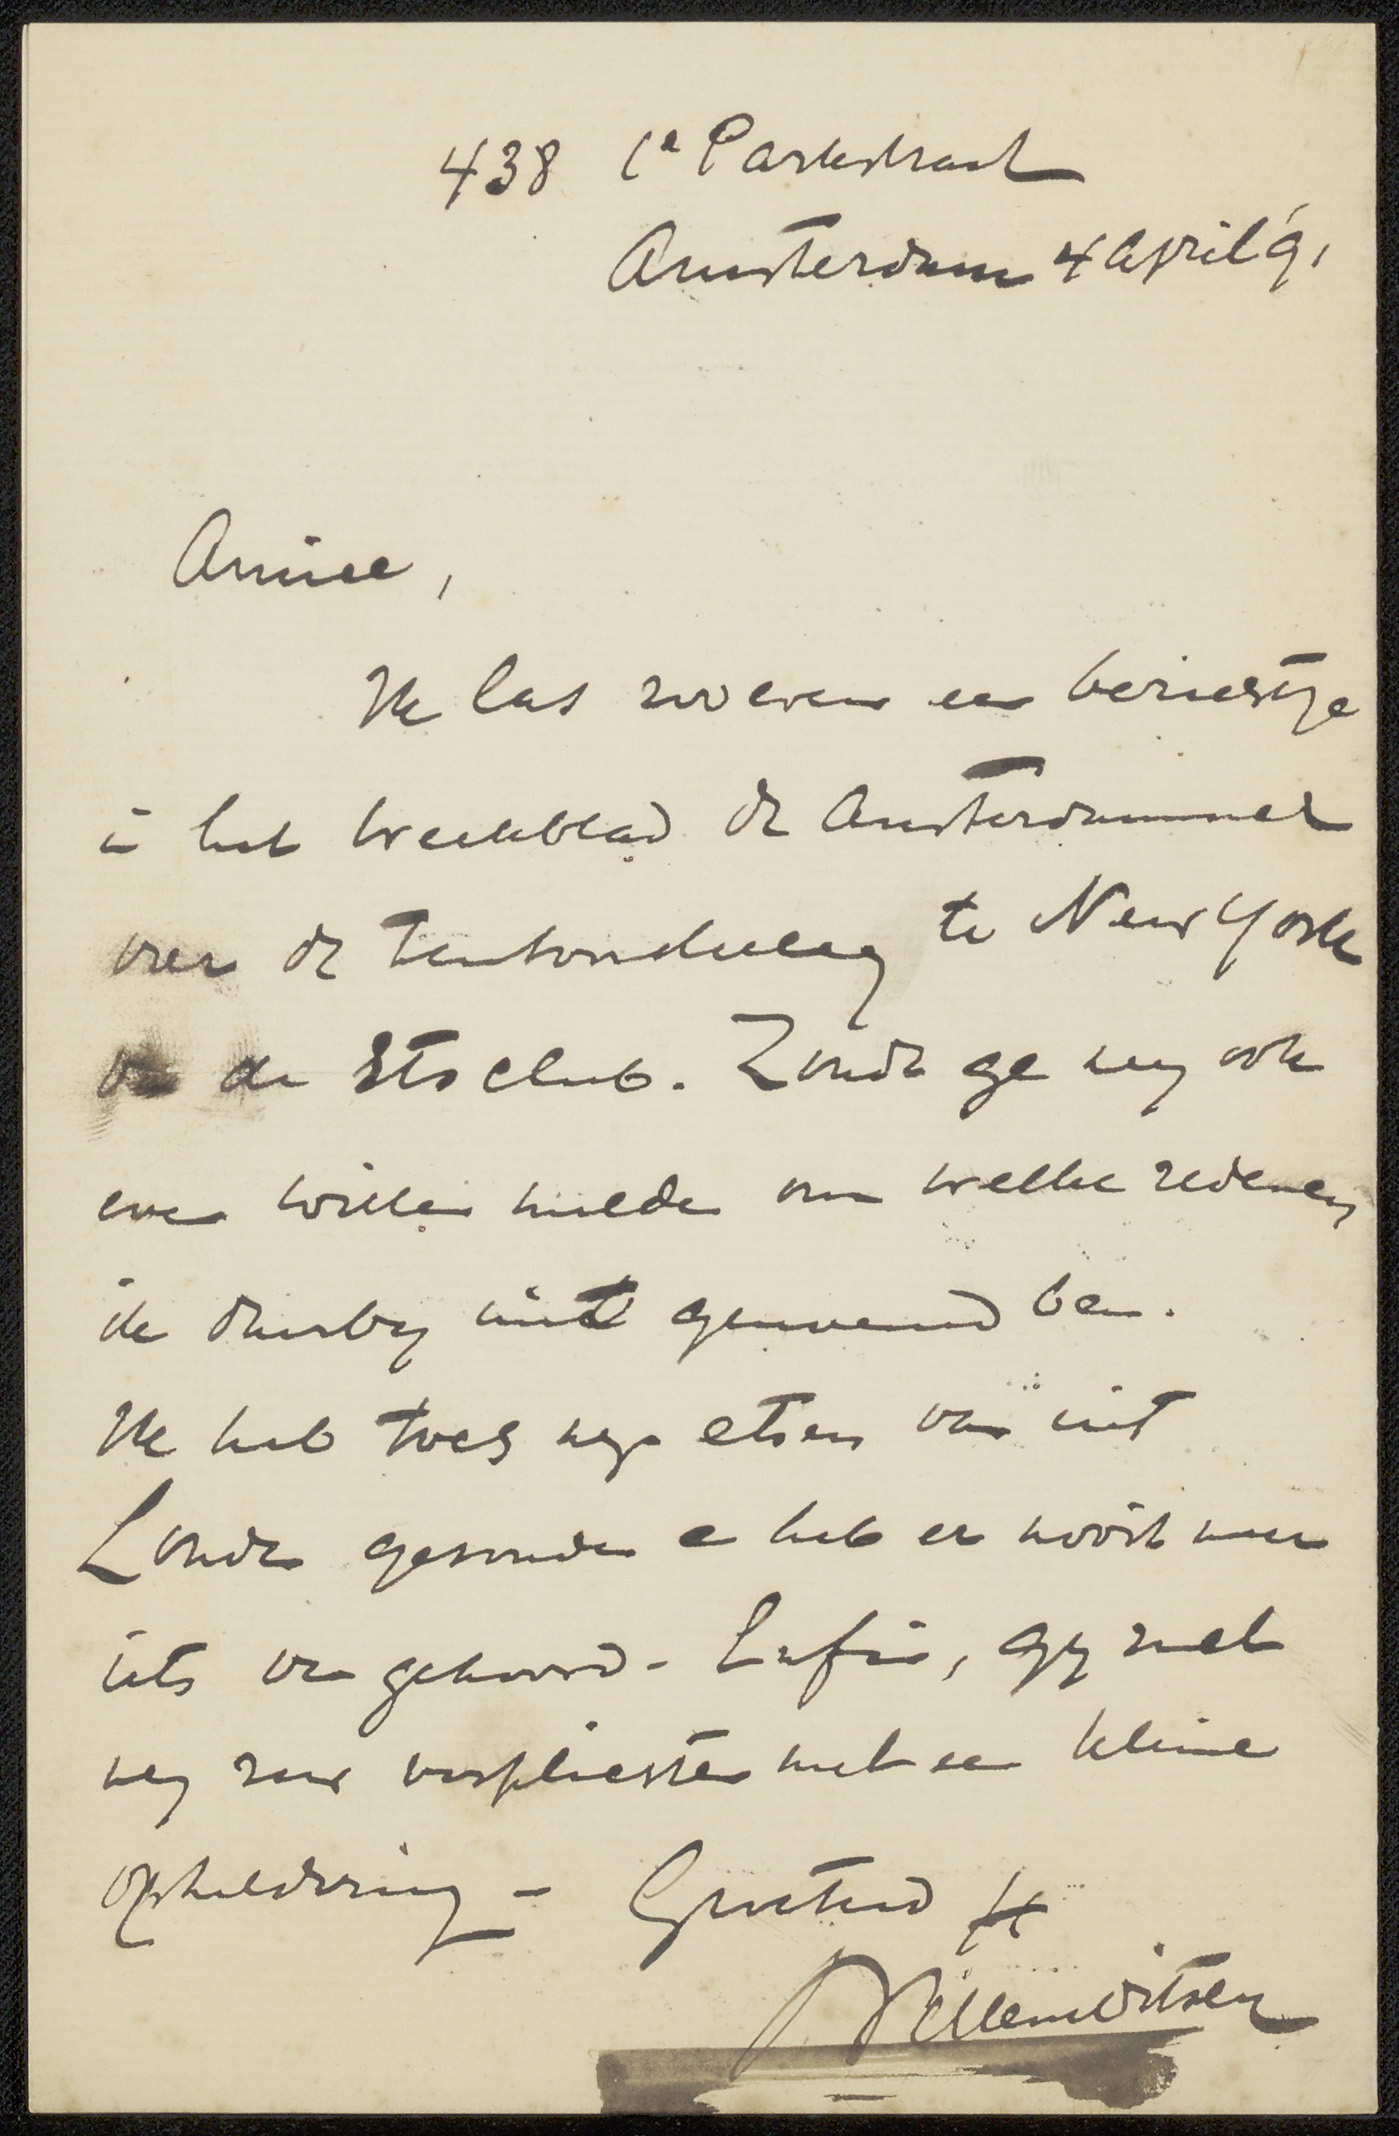 438 1e Parkstraat
Amsterdam 4 April '91
Amice,
Ik las zooeven een berichtje
in het weekblad de Amsterdammer
over de tentoonstelling te New York
van de Etsclub. Zoudt ge mij ook
even willen melden om welke redenen
ik daarbij niet genoemd ben.
Ik heb toch mijn etsen van uit
Londen gezonden en heb er nooit meer
iets van gehoord - Enfin, gij zult
mij zeer verplichten met een kleine
opheldering - Groetend
Willem Witsen